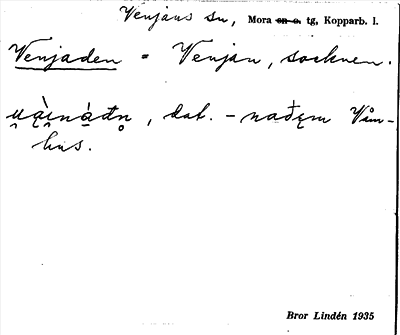 Venjans sn, Mora en o. tg, Kopparb. l.
Venjaden = Venjan, socknen.
dat. - Våm-
hus.
Bror Lindén 1935